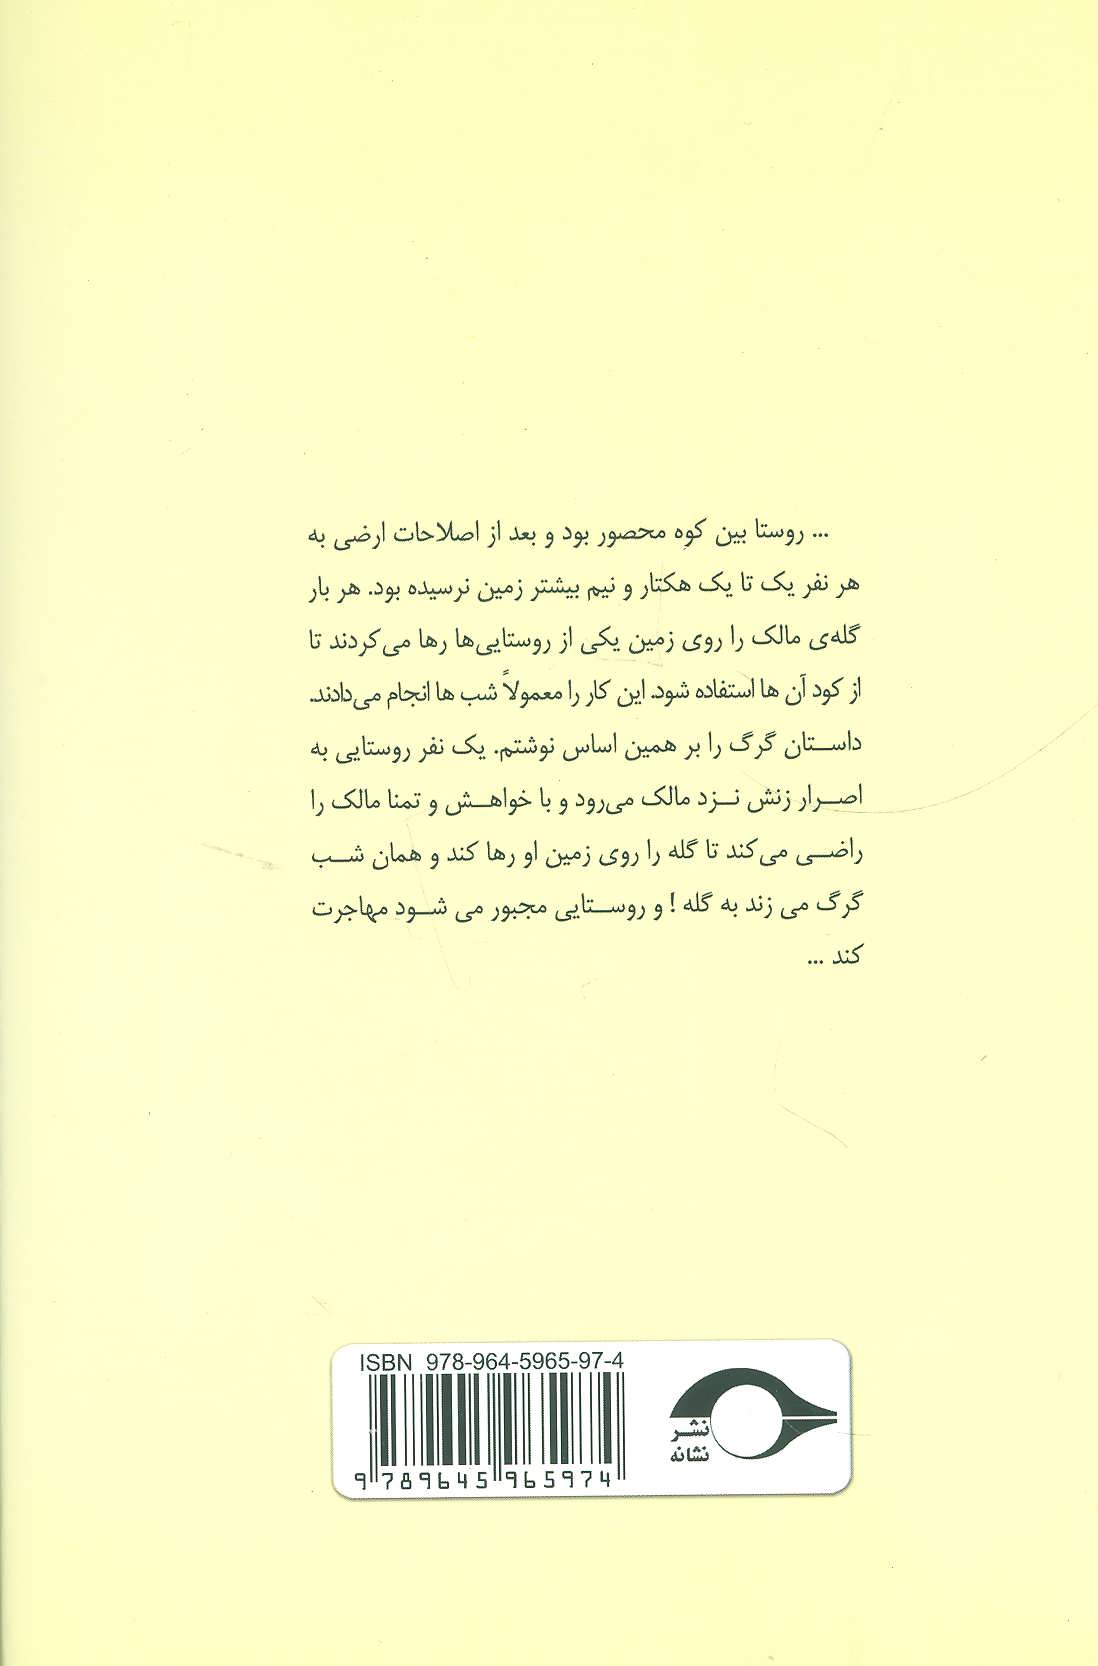 ... روستا بین کوه محصور بود و بعد از اصلاحات ارضی به
هر نفر یک تا یک هکتار و نیم بیشتر زمین نرسیده بود. هر بار
گله‌ی مالک را روی زمین یکی از روستایی‌ها رها می‌کردند تا
از کود آن ها استفاده شود. این کار را معمولاً شب ها انجام می‌دادند.
داستان گرگ را بر همین اساس نوشتم. یک نفر روستایی به
اصرار زنش نزد مالک می‌رود و با خواهش و تمنا مالک را
راضی می‌کند تا گله را روی زمین او رها کند و همان شب
گرگ می زند به گله ! و روستایی مجبور می شود مهاجرت
کند ...
ISBN 978-964-5965-97-4
9 789645 965974
نشر
نشانه